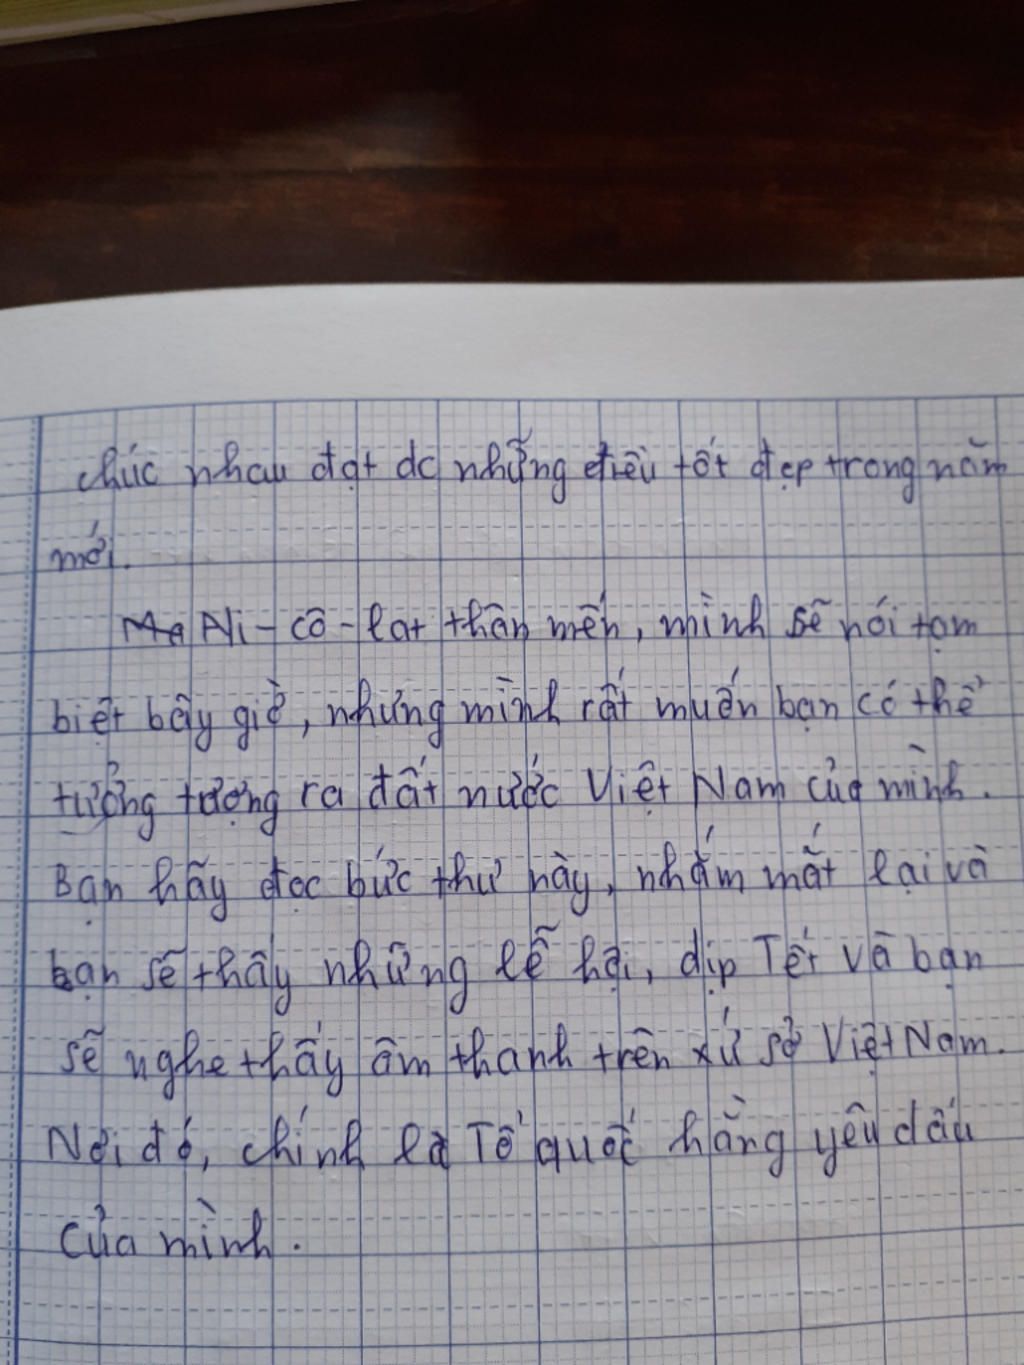 chúc nhau đạt dc những điều tốt đẹp trong năm
mới.
Ni-cô-lat thân mến, mình sẽ nói tạm
biệt bây giờ, nhưng mình rất muốn bạn có thể
tưởng tượng ra đất nước Việt Nam của mình.
Bạn hãy đọc bức thư này, nhắm mắt lại và
bạn sẽ thấy những lễ hội, dịp Tết và bạn
sẽ nghe thấy âm thanh trên xứ sở Việt Nam.
Nơi đó, chính là Tổ quốc hằng yêu dấu
của mình.